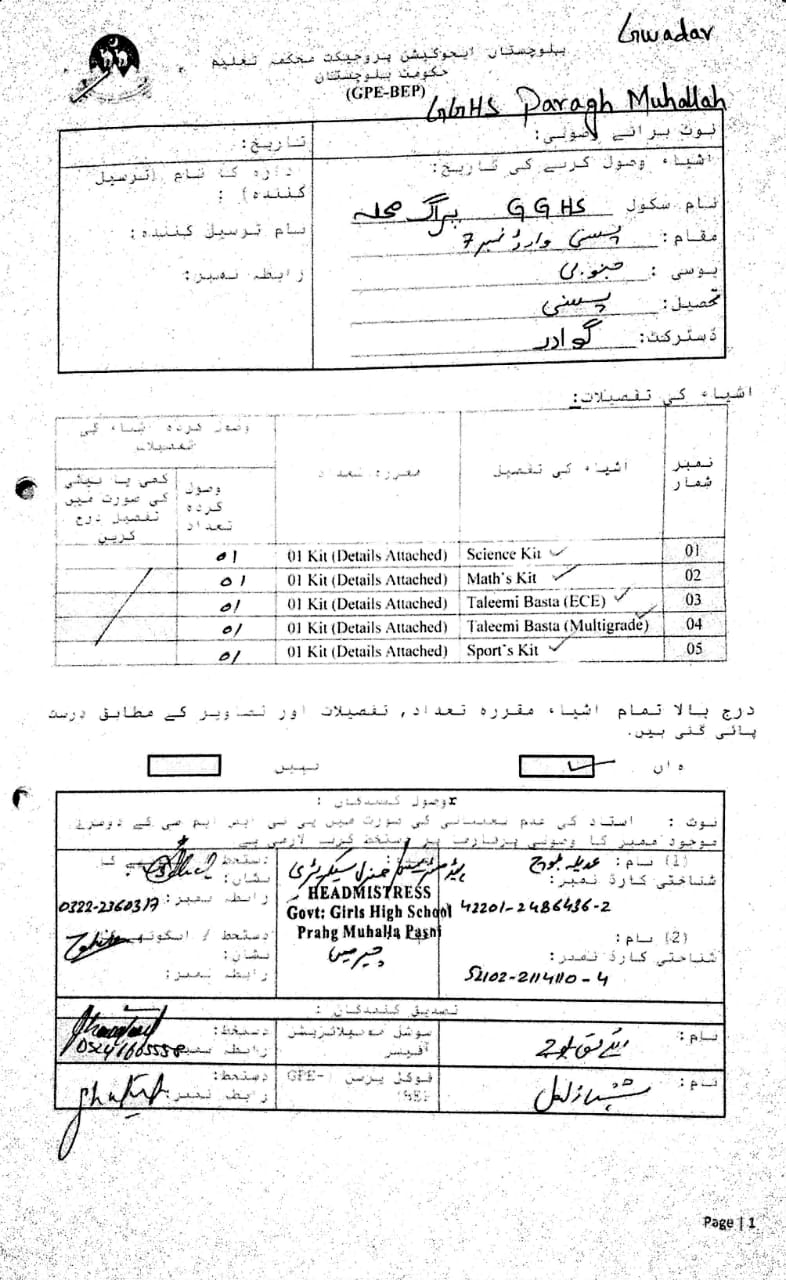 Gwadar
بلوچستان ایجوکیشن پروجیکٹ محکمہ تعلیم
حکومت بلوچستان
(GPE-BEP)
GGHS Paragh Muhallah
نوٹ برائے وصولی:
تاریخ:
اشیاء وصول کرنے کی تاریخ:
ادارہ کا نام (ترسیل کنندہ) :
نام سکول GGHS پراگ محلہ
نام ترسیل کنندہ:
مقام: پسنی وارڈ نمبر 7
رابطہ نمبر:
یوسی : جنوبی
تحصیل: پسنی
ڈسٹرکٹ: گوادر
اشیاء کی تفصیلات:
نمبر شمار
اشیاء کی تفصیل
مقررہ تعداد
وصول کردہ اشیاء کی تفصیلات
وصول کردہ تعداد
کمی یا بیشی کی صورت میں تفصیل درج کریں
01 Science Kit 01 Kit (Details Attached) 01
02 Math's Kit 01 Kit (Details Attached) 01
03 Taleemi Basta (ECE) 01 Kit (Details Attached) 01
04 Taleemi Basta (Multigrade) 01 Kit (Details Attached) 01
05 Sport's Kit 01 Kit (Details Attached) 01
درج بالا تمام اشیاء مقررہ تعداد, تفصیلات اور تصاویر کے مطابق درست
پائی گئی ہیں.
ہاں
نہیں
وصول کنندگان :
نوٹ : استاد کی عدم
موجود ممبر کا وصولی پر دستخط کرنا لازمی ہے
(1) نام: عدیلہ بلوچ
جنرل سیکریٹری
دستخط
شناختی کارڈ نمبر:
42201-2486436-2
HEADMISTRESS
Govt: Girls High School
Prahg Muhalla Pasni
نشان:
رابطہ نمبر: 0322-2360317
(2) نام:
چیئرمین
دستخط / انگوٹھے
نشان:
شناختی کارڈ نمبر:
52102-2114110-4
رابطہ نمبر:
تصدیق کنندگان :
نام:
سوشل موبیلائزیشن آفیسر
دستخط:
رابطہ نمبر:
نام: شہناز لعل
فوکل پرسن GPE-BEP
دستخط:
رابطہ نمبر:
Page | 1